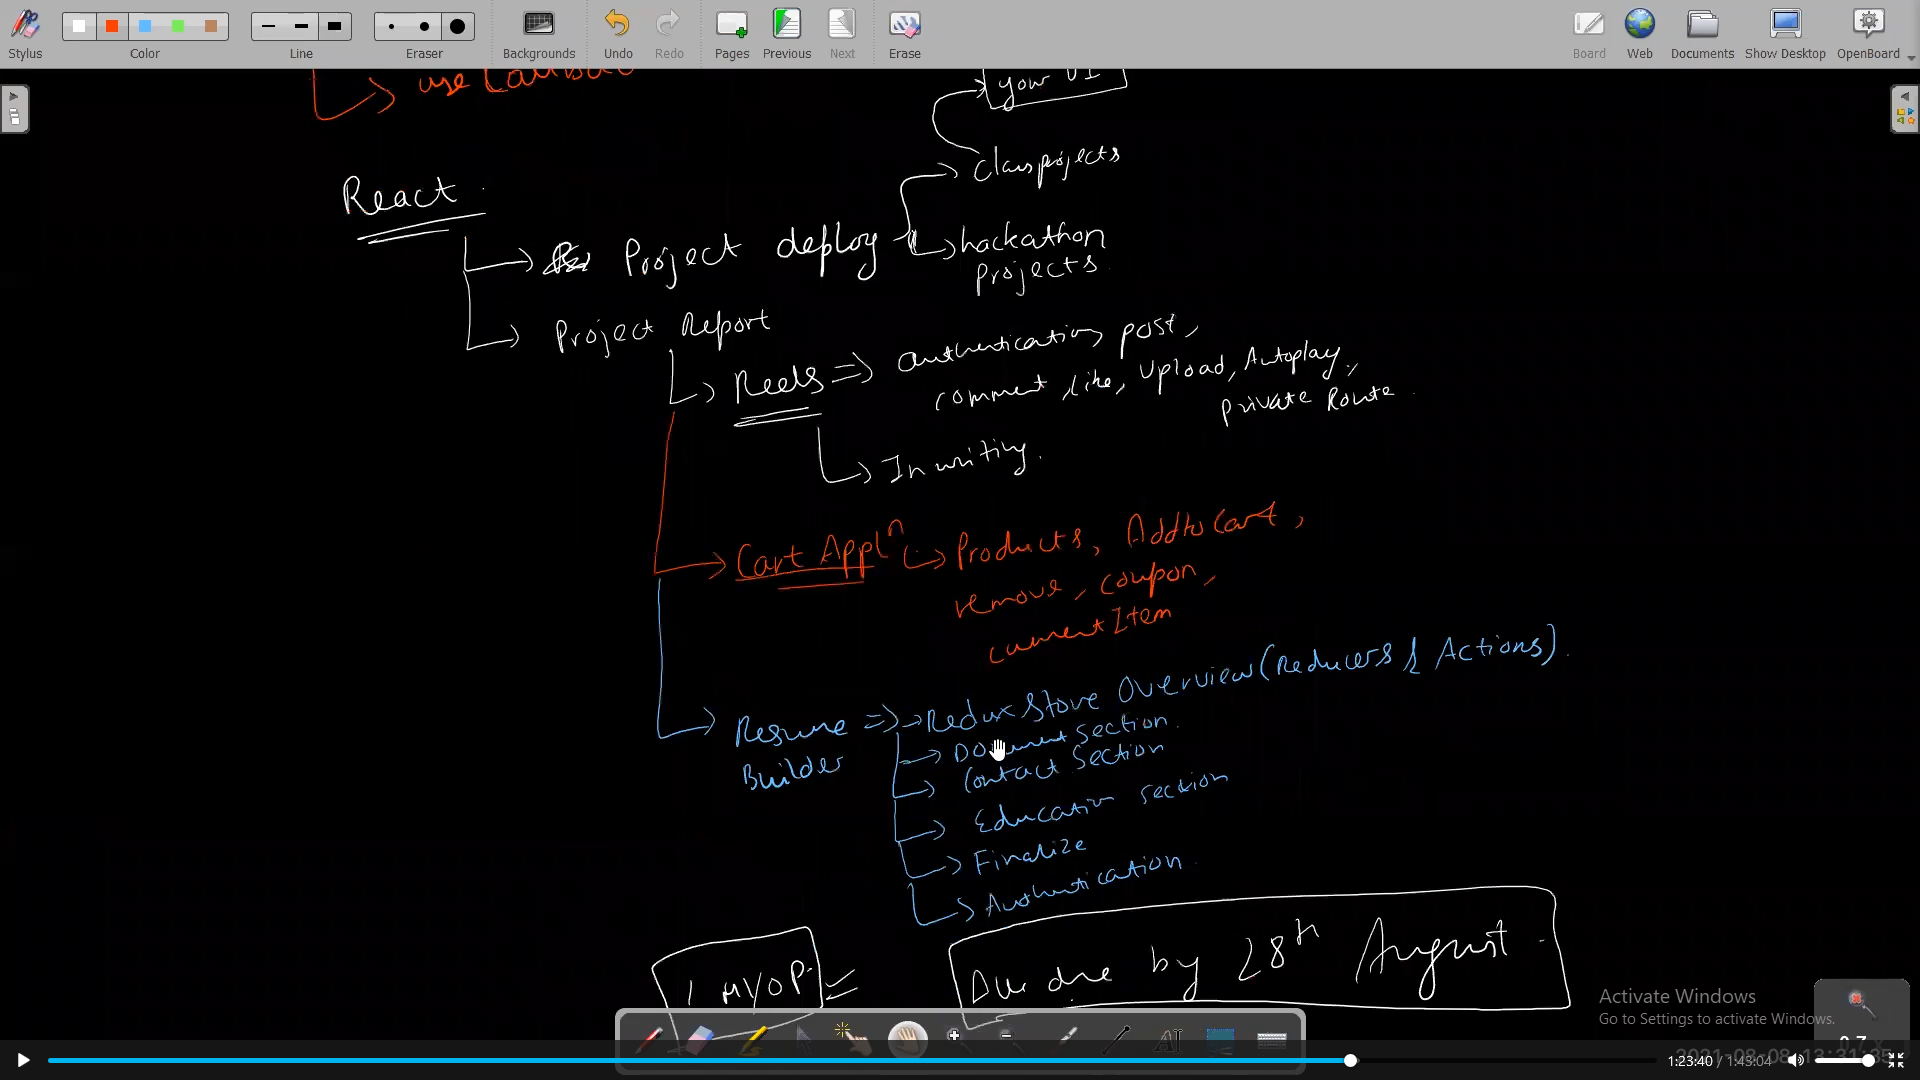 Stylus Color Line Eraser Backgrounds Undo Redo Pages Previous Next Erase Board Web Documents Show Desktop OpenBoard
use
your UI
Class projects
React
Project deploy
hackathon
projects
Project Report
Reels => authentication, post,
comment, like, Upload, Autoplay,
private Route
In writing.
Cart Appl^n Products, Add to Cart,
remove, coupon,
current Item
Resume => Redux Store Overview (Reducers & Actions).
Builder
Document Section.
Contact Section
Education Section
Finalize
Authentication.
1 MYOP.
due by 28th August
Activate Windows
Go to Settings to activate Windows.
1:23:40 / 1:43:04